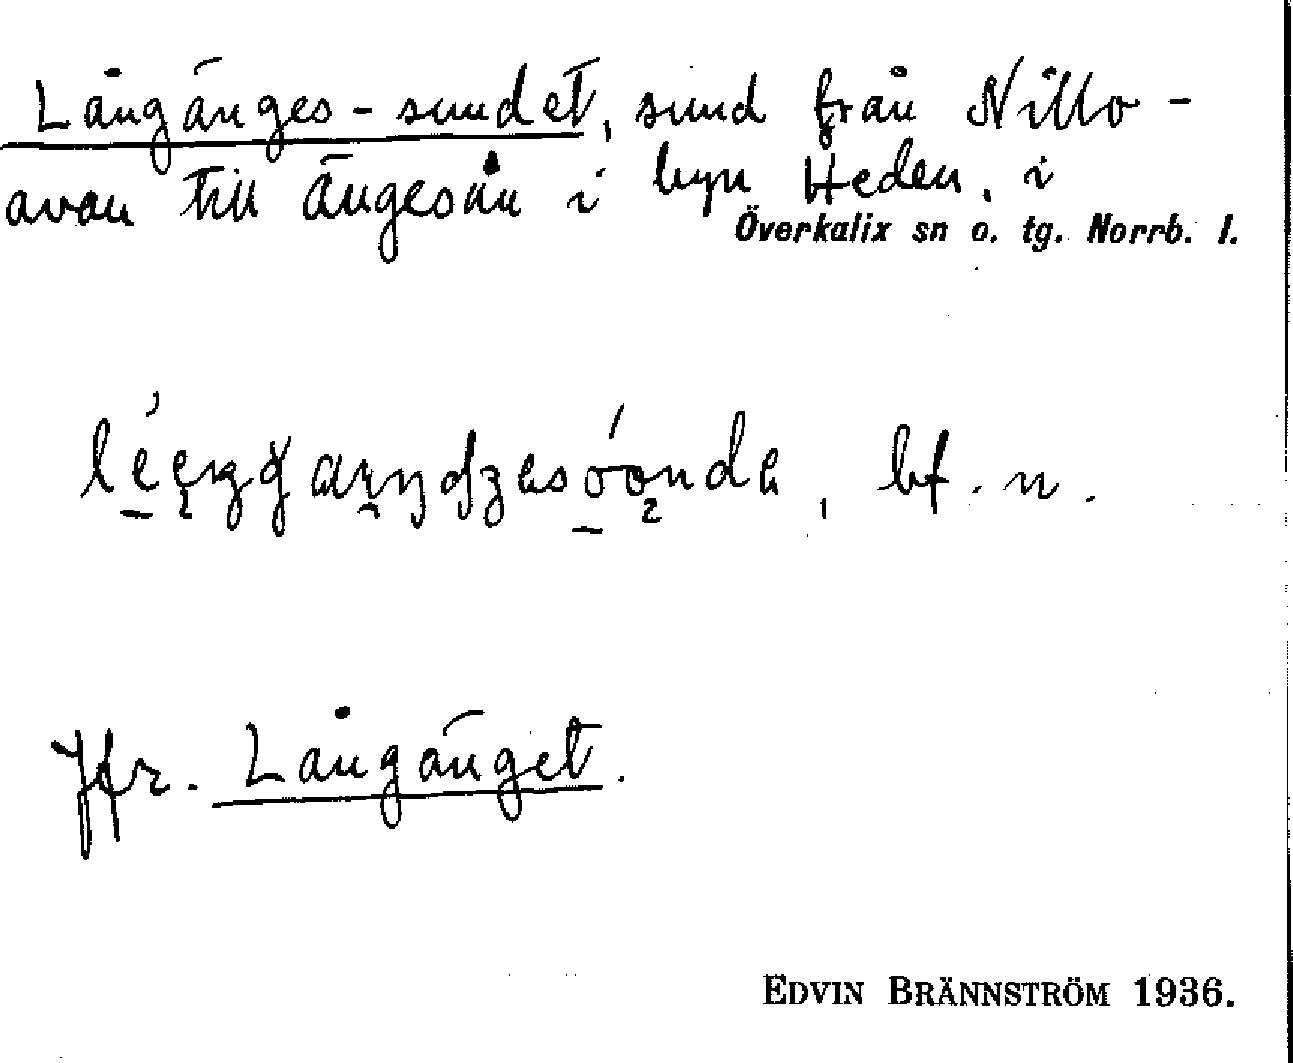 Långänges-sundet, sund från Nillo-
avan till Ängesån i byn Heden, i
Överkalix sn o. tg. Norrb. l.
bf. n.
Jfr. Långänget.
EDVIN BRÄNNSTRÖM 1936.